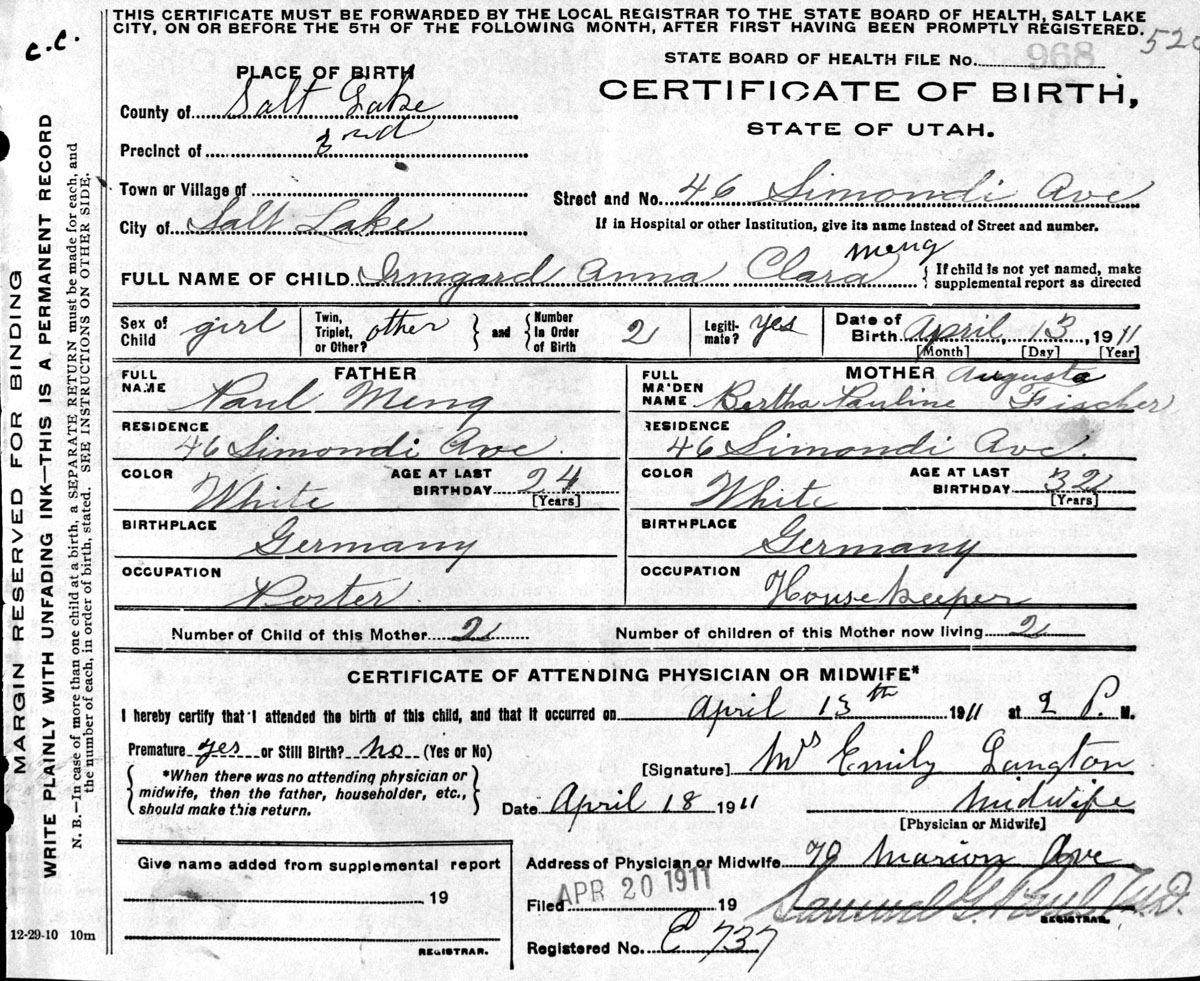 THIS CERTIFICATE MUST BE FORWARDED BY THE LOCAL REGISTRAR TO THE STATE BOARD OF HEALTH, SALT LAKE
CITY, ON OR BEFORE THE 5TH OF THE FOLLOWING MONTH, AFTER FIRST HAVING BEEN PROMPTLY REGISTERED.
C.C.
STATE BOARD OF HEALTH FILE No.
968
PLACE OF BIRTH
CERTIFICATE OF BIRTH,
STATE OF UTAH.
County of Salt Lake
Precinct of 2nd
Town or Village of
Street and No. 46 Simondi Ave
City of Salt Lake
If in Hospital or other Institution, give its name instead of Street and number.
FULL NAME OF CHILD Irmgard Anna Clara Meng
{ If child is not yet named, make
supplemental report as directed
Sex of Child girl
Twin, Triplet, or Other? other } and { Number In Order of Birth 2
Legiti-mate? yes
Date of Birth April, 13, 1911
[Month] [Day] [Year]
FATHER
FULL NAME Paul Meng
MOTHER
FULL MAIDEN NAME Bertha Pauline Augusta Fischer
RESIDENCE 46 Simondi Ave.
RESIDENCE 46 Simondi Ave.
COLOR White AGE AT LAST BIRTHDAY 24 [Years]
COLOR White AGE AT LAST BIRTHDAY 32 [Years]
BIRTHPLACE Germany
BIRTHPLACE Germany
OCCUPATION Porter
OCCUPATION Housekeeper
Number of Child of this Mother 2
Number of children of this Mother now living 2
CERTIFICATE OF ATTENDING PHYSICIAN OR MIDWIFE*
I hereby certify that I attended the birth of this child, and that it occurred on April 13th 1911 at 2 P. M.
Premature yes or Still Birth? no (Yes or No)
[Signature] Mrs Emily Langton
{ *When there was no attending physician or
midwife, then the father, householder, etc.,
should make this return. }
Date April 18 1911
Midwife
[Physician or Midwife]
Give name added from supplemental report
19
REGISTRAR.
Address of Physician or Midwife 70 Marion Ave
Filed APR 20 1911 19
REGISTRAR.
Registered No. C 737
12-29-10 10m
MARGIN RESERVED FOR BINDING
WRITE PLAINLY WITH UNFADING INK—THIS IS A PERMANENT RECORD
N. B.—In case of more than one child at a birth, a SEPARATE RETURN must be made for each, and
the number of each, in order of birth, stated. SEE INSTRUCTIONS ON OTHER SIDE.